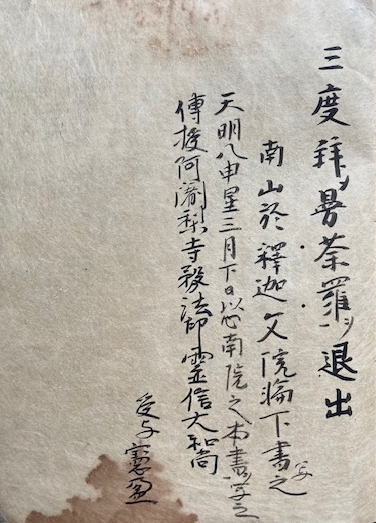 三度拜曼荼羅退出
南山於釋迦文院下書之
天明八申星三月下日以南院之本書写之
傳授阿闍梨寺務法印霊信大和尚
受与